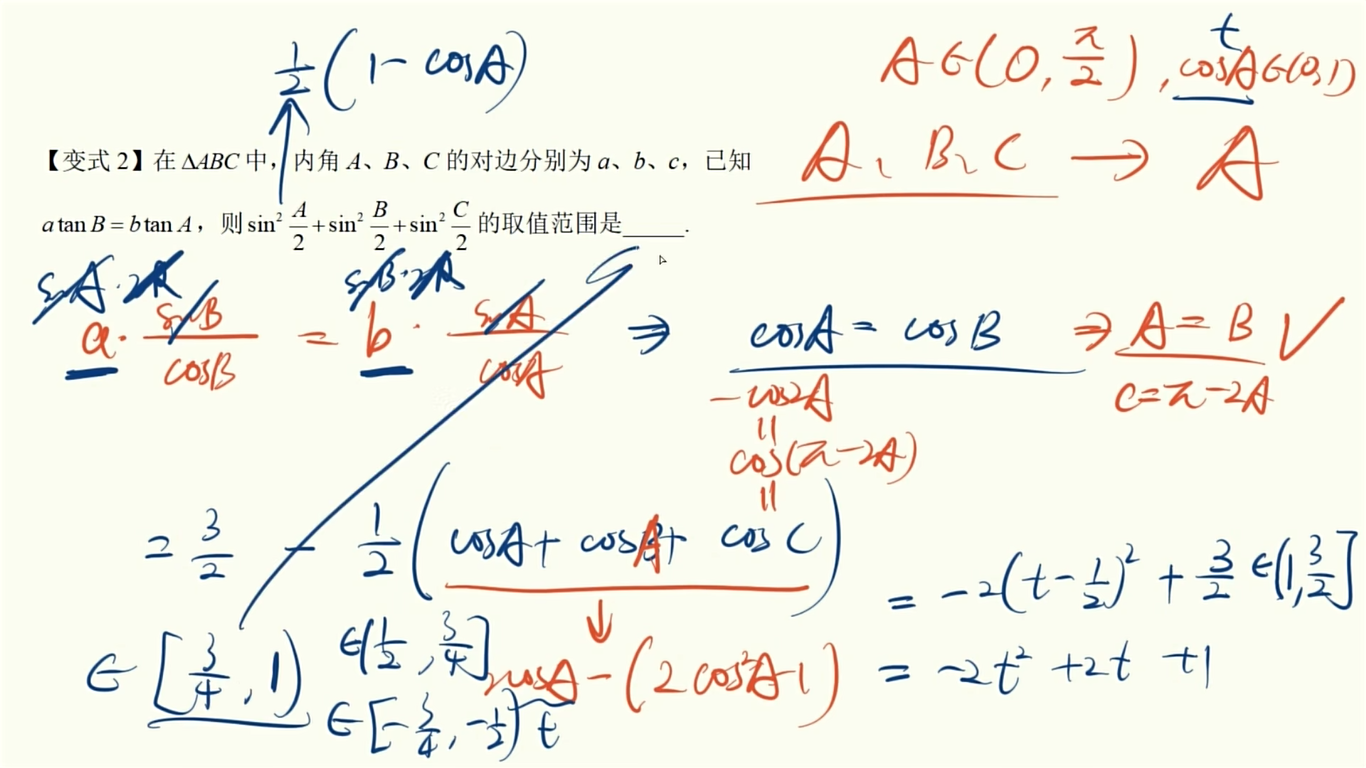 1/2(1-cosA)
t
A∈(0,π/2),cosA∈(0,1)
A、B、C→A
【变式2】在ΔABC中，内角A、B、C的对边分别为a、b、c，已知
a tan B = b tan A，则sin² A/2 + sin² B/2 + sin² C/2 的取值范围是_____.
sinA·2R sinB·2R
a·sinB/cosB = b·sinA/cosA ⇒ cosA = cosB ⇒ A = B √
-cos2A C=π-2A
=
cos(π-2A)
=
= 3/2 - 1/2(cosA + cosA + cosC)
= -2(t-1/2)² + 3/2 ∈(1,3/2]
∈[3/4,1) ∈(1/2,3/4] 2cosA-(2cos²A-1) = -2t²+2t+1
∈[-3/4,-1/2) t